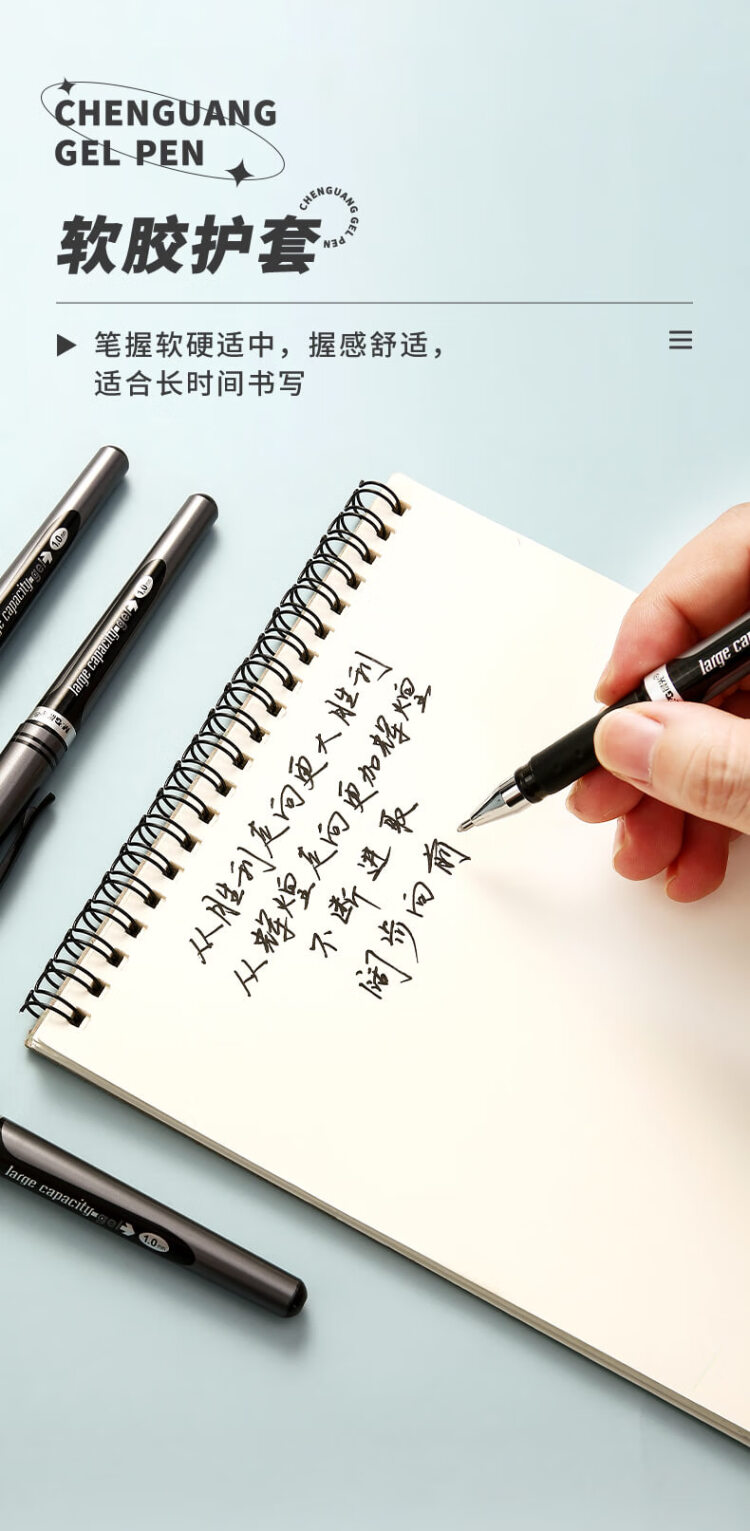 CHENGUANG
GEL PEN
CHENGUANG GEL PEN
软胶护套
笔握软硬适中，握感舒适，
适合长时间书写
large capacity gel 1.0
large capacity gel 1.0
M&G
从胜利走向更大胜利
从辉煌走向更加辉煌
不断进取
阔步向前
large ca
large capacity gel 1.0